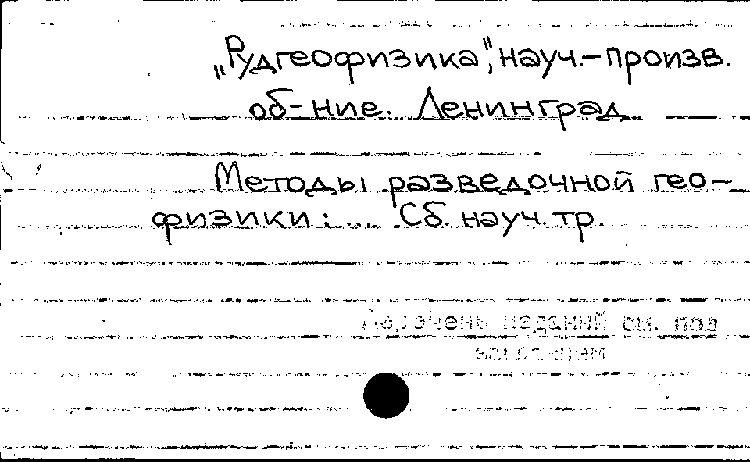 „Рудгеофизика”, науч.-произв.
об-ние. Ленинград
Методы разведочной гео-
физики: ... Сб. науч. тр.
Перечень изданий см. под
заглавием